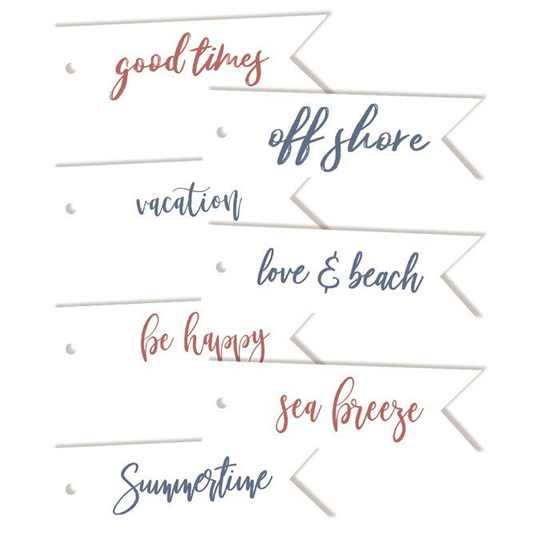 good times
off shore
vacation
love & beach
be happy
sea breeze
Summertime